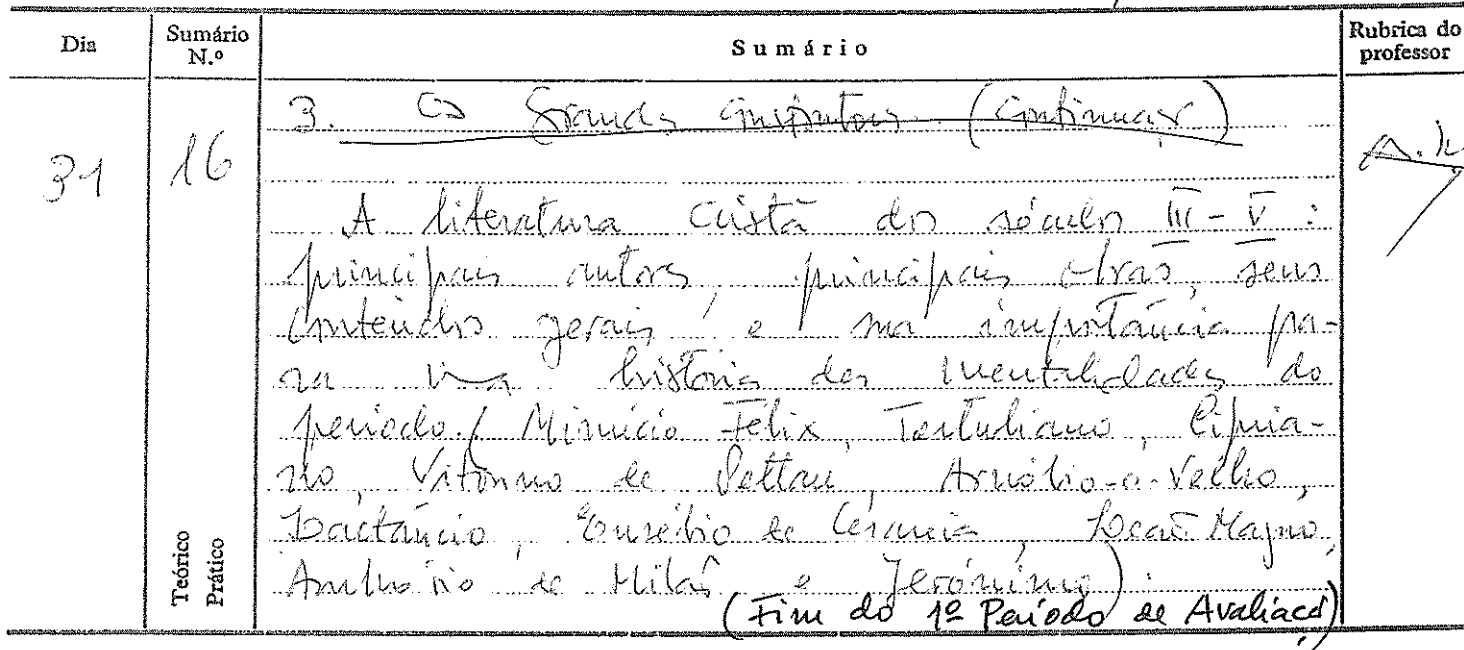 Dia
Sumário N.º
Sumário
Rubrica do professor
31
16
3. Os Grandes (Continuação)
A literatura Cristã dos séculos III - V :
principais autores, principais obras, seus
conteúdos gerais, e sua importância pa-
ra uma história das mentalidades do
período. ( Minúcio Félix, Tertuliano, Cipria-
no, Vitorino de Pettau, Arnóbio-o-Velho,
Lactâncio, Eusébio de Cesareia, Leão Magno,
Ambrósio de Milão e Jerónimo).
(Fim do 1º Período de Avaliação)
Teórico
Prático